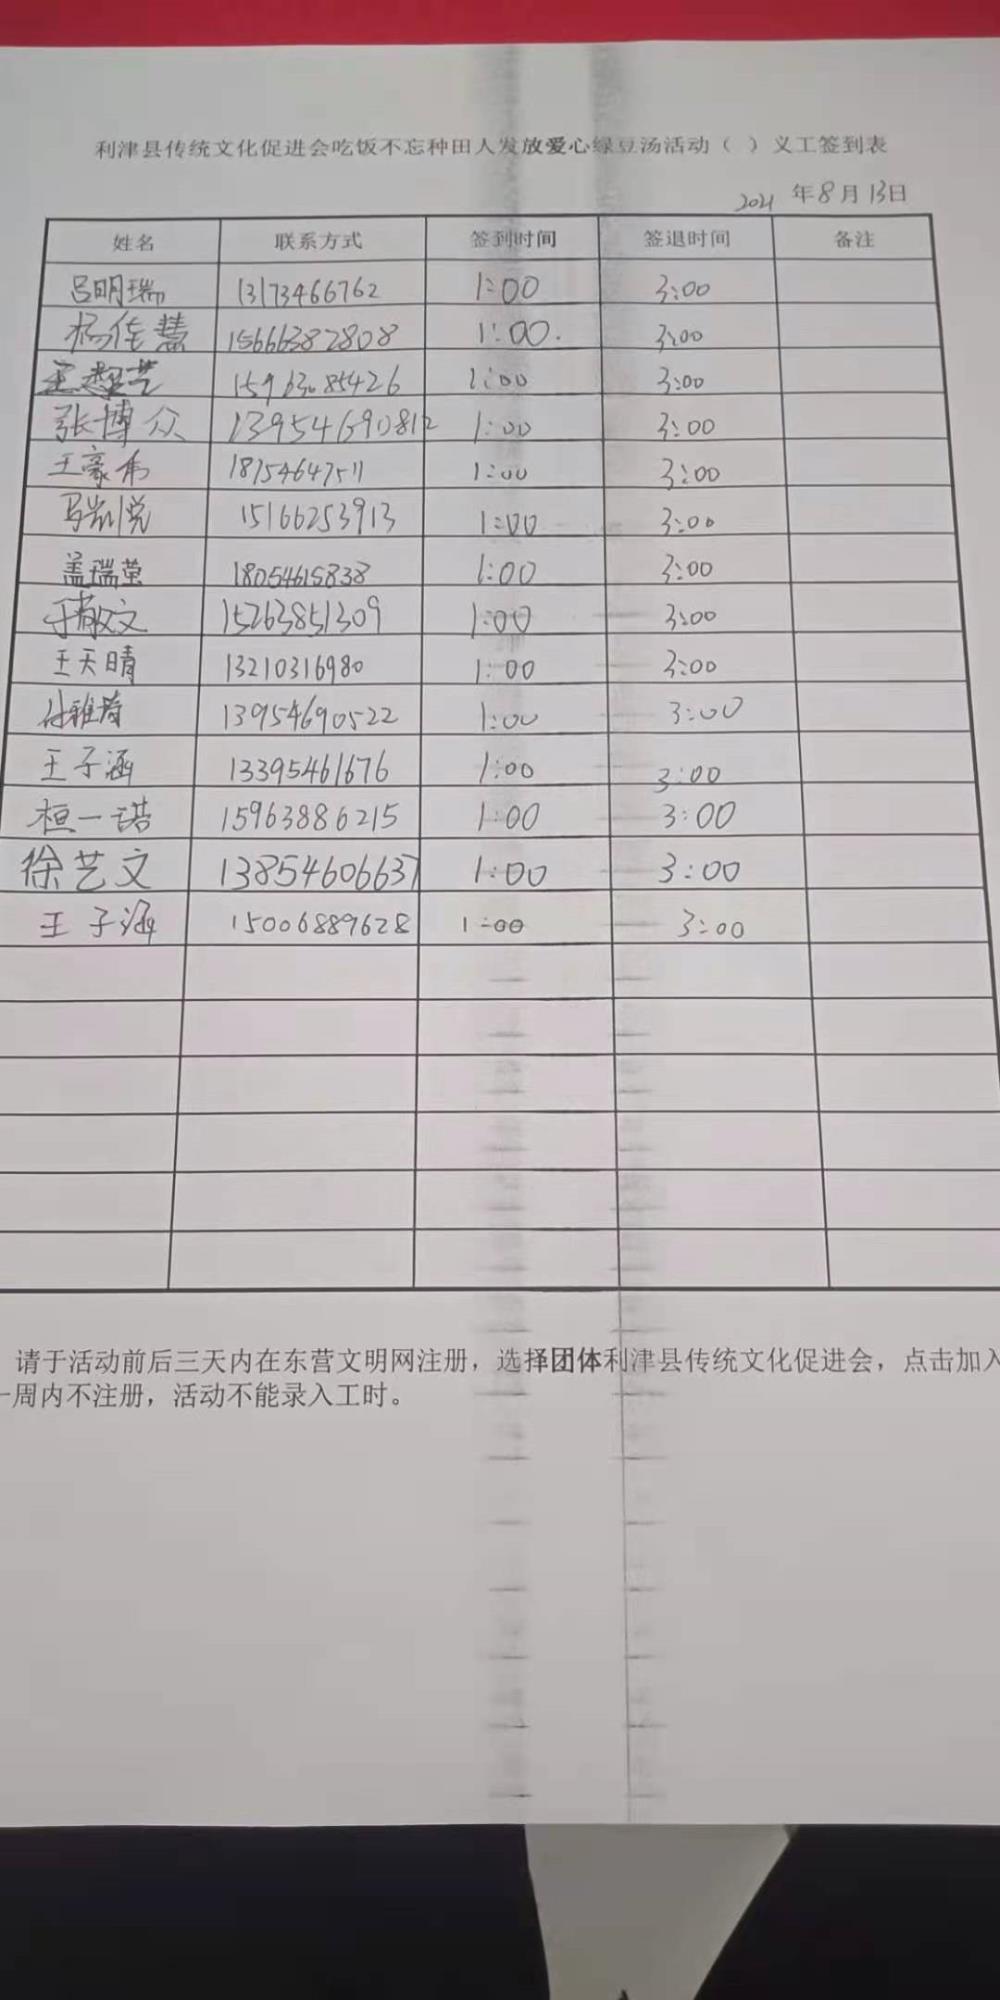 利津县传统文化促进会吃饭不忘种田人发放爱心绿豆汤活动（ ）义工签到表
2021 年 8 月 13 日
姓名 联系方式 签到时间 签退时间 备注
吕明瑞 13173466762 1:00 3:00
杨佳慧 15666382808 1:00. 3:00
15963085426 1:00 3:00
张博众 1:00 3:00
王豪伟 18754647511 1:00 3:00
马凯悦 15166253913 1:00 3:00
盖瑞莹 18054615838 1:00 3:00
于敏文 15263851309 1:00 3:00
王天晴 13210316980 1:00 3:00
付雅茹 13954690522 1:00 3:00
王子涵 13395461676 1:00 3:00
桓一诺 15963886215 1:00 3:00
徐艺文 13854606637 1:00 3:00
王子涵 15006889628 1:00 3:00
请于活动前后三天内在东营文明网注册，选择团体利津县传统文化促进会，点击加入
一周内不注册，活动不能录入工时。